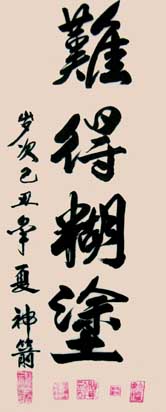 難得糊塗
岁次己丑年夏神箭